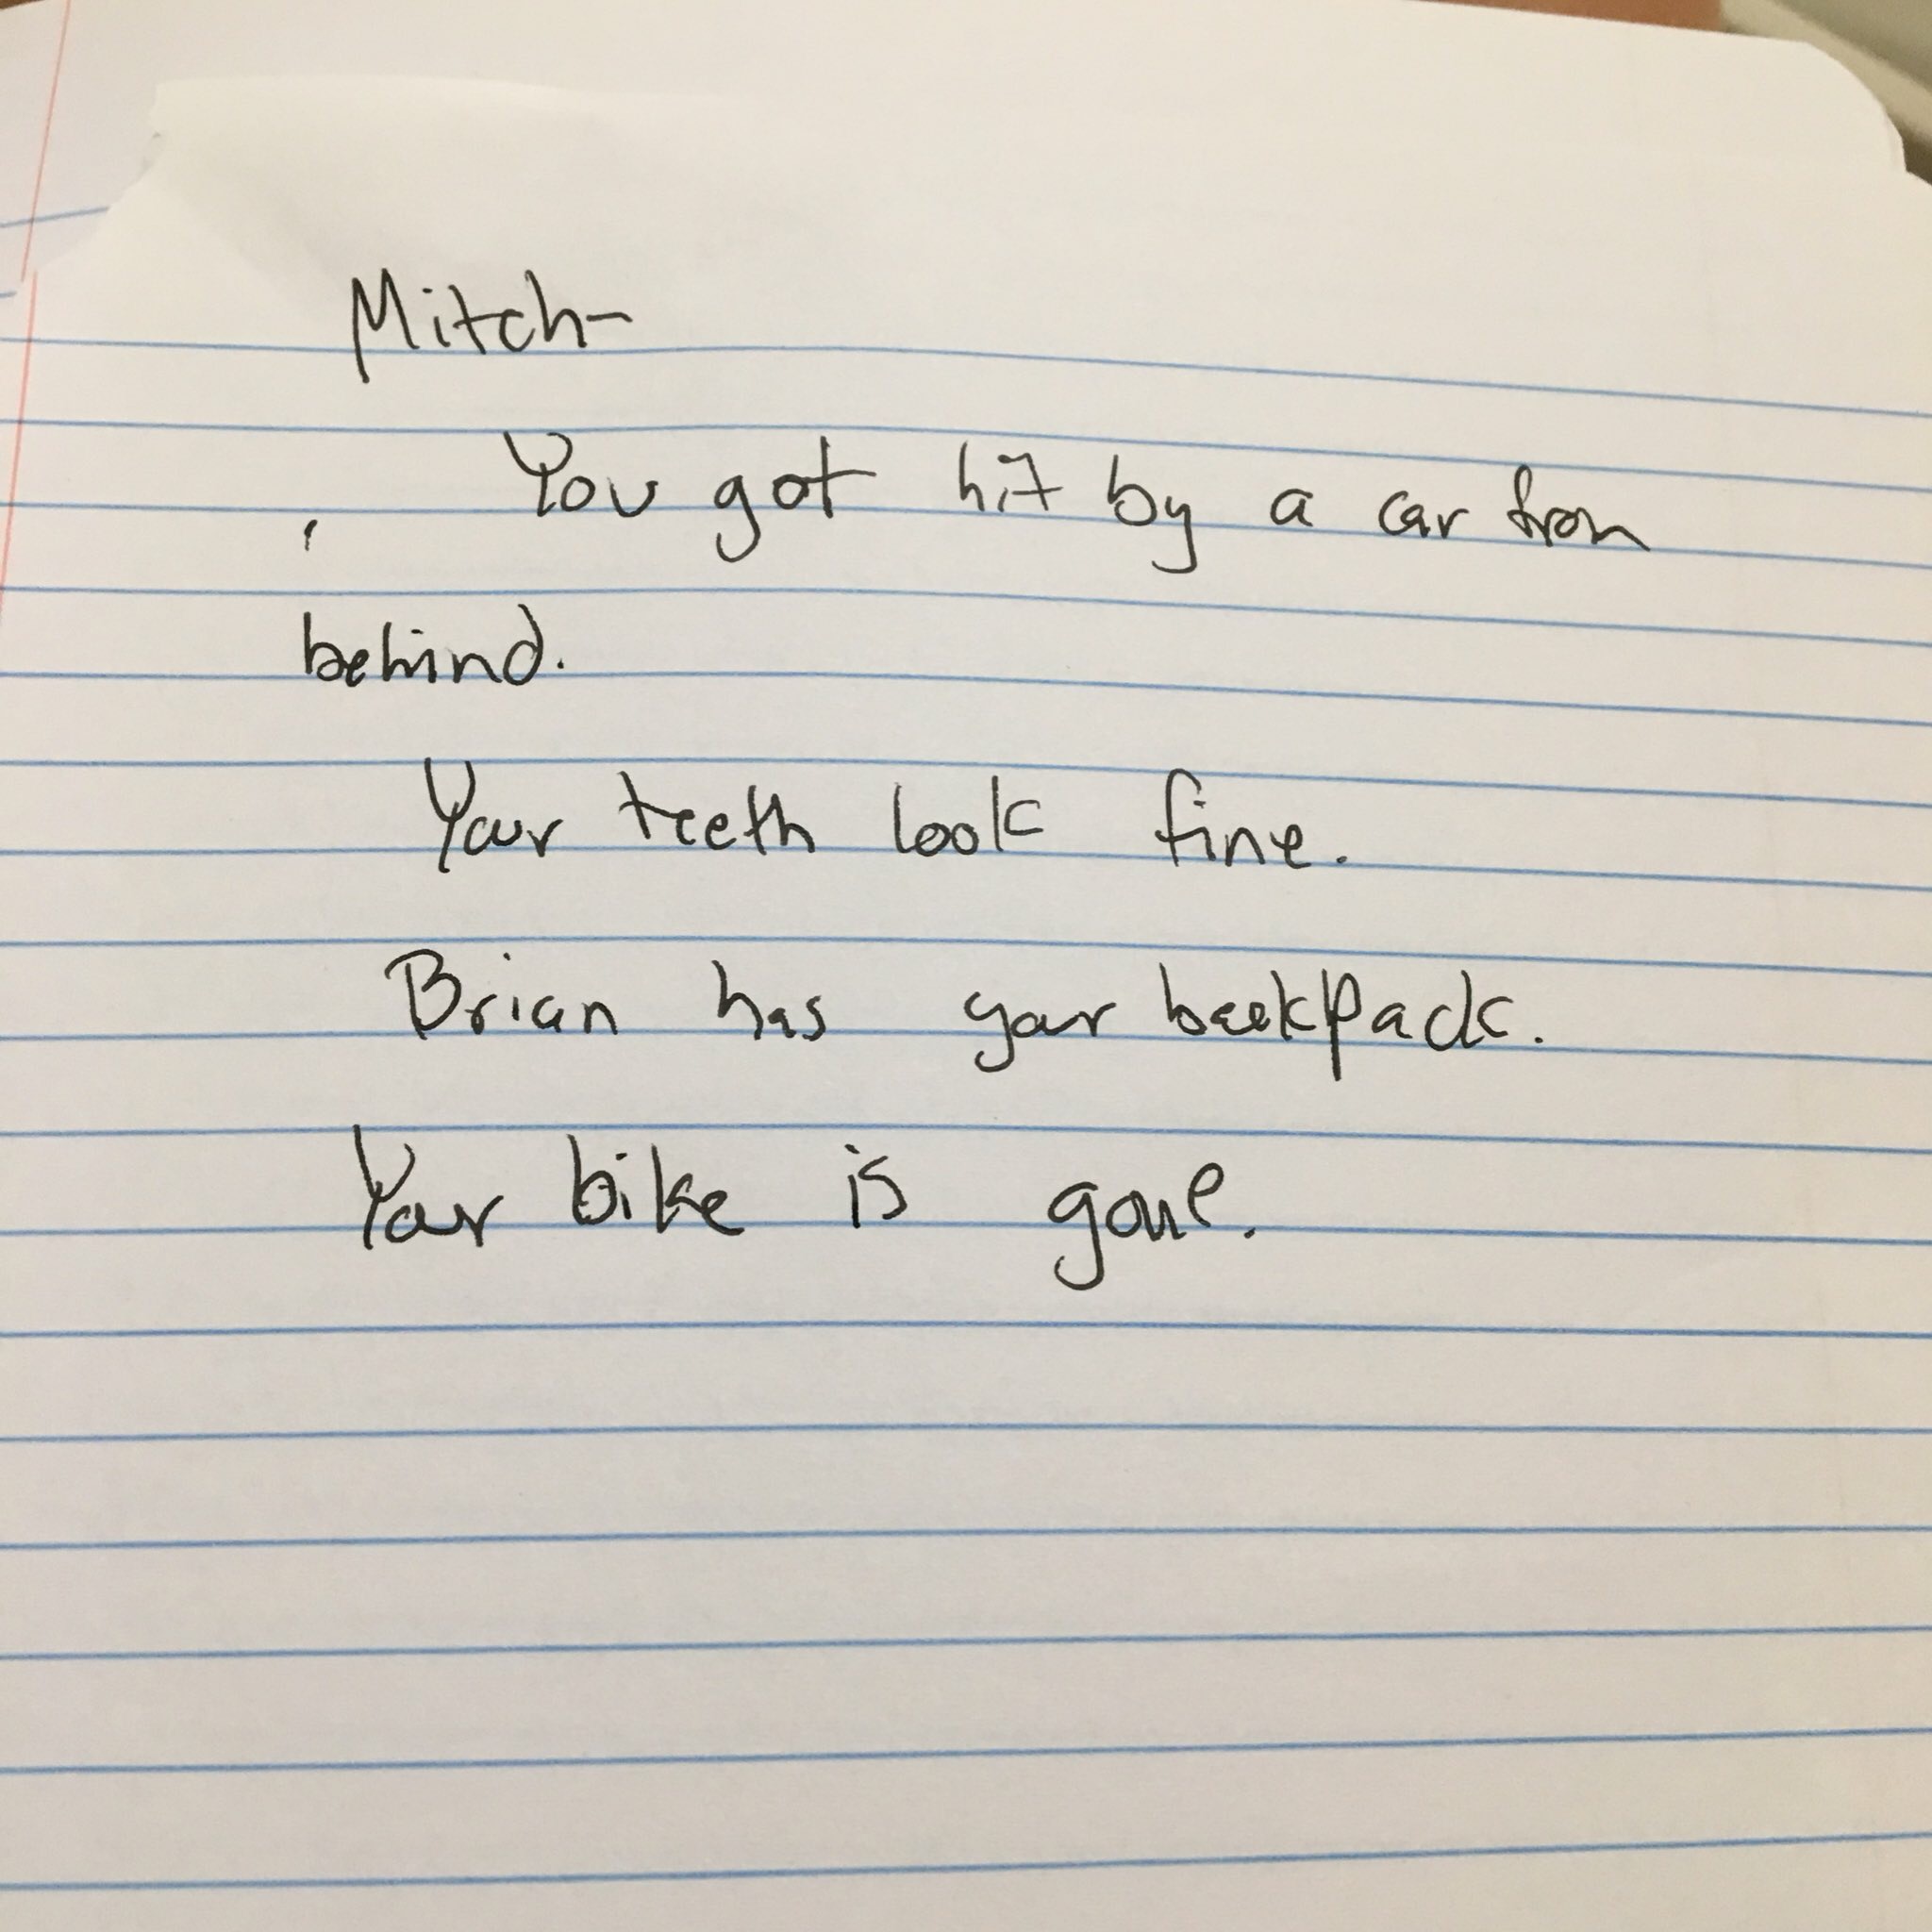 Mitch-
You got hit by a car from
behind.
Your teeth look fine.
Brian has your backpack.
Your bike is gone.